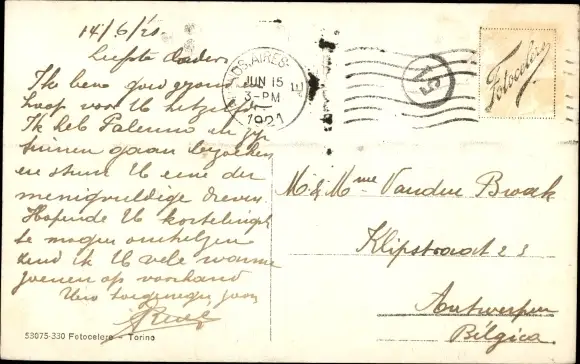 14/6/21.
Liefste Ouders
Ik ben goed gezond en
hoop voor U hetzelfde.
Ik heb Palermo en zijn
tuinen gaan bezoeken
en stuur U eene der
menigvuldige dreven.
Hopende U kortelings
te mogen omhelzen
zend ik U vele warme
zoenen op voorhand
Uw toegenegen zoon
BS. AIRES
JUN 15
3-PM
1921
E
15
Fotocelere
M. & Mme Vanden Broek
Klipstraat 23
Antwerpen
Bélgica
53075-330 Fotocelere - Torino